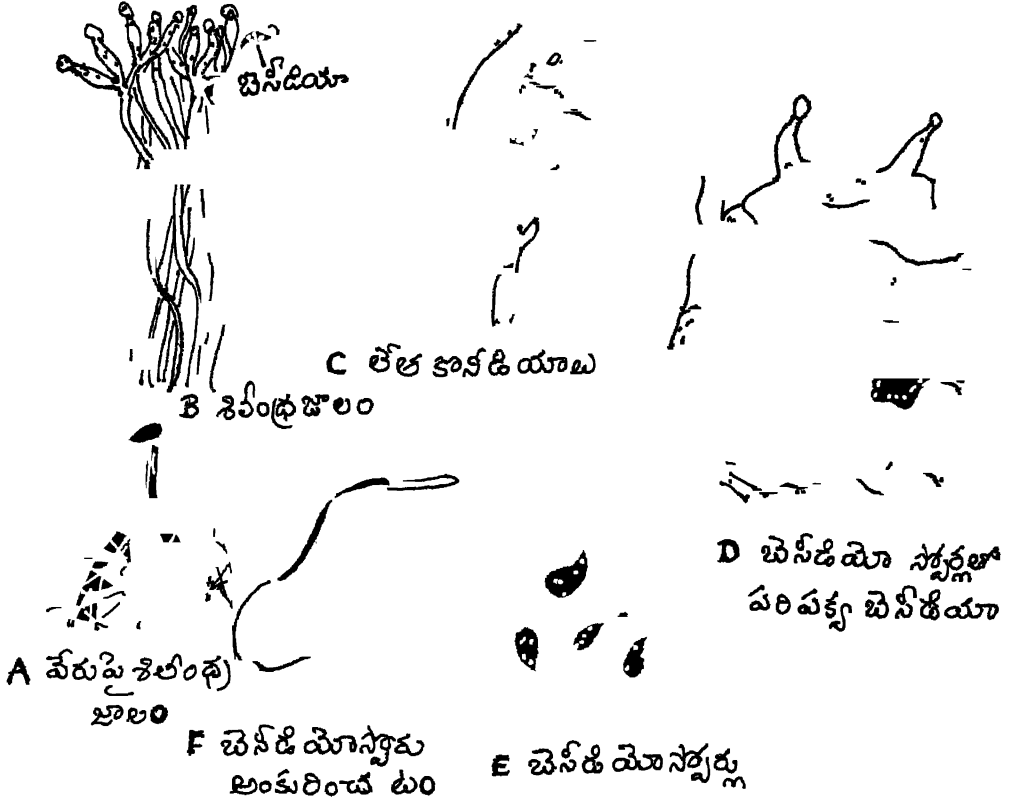 బెసీడియా
C లేత కొనీడియాలు
B శిలీంధ్రజాలం
D బెసీడియో స్పోర్లతో
పరిపక్వ బెసీడియా
A వేరుపై శిలీంధ్ర
జాలం
F బెసీడియోస్పోరు
అంకురించటం
E బెసీడియోస్పోర్లు